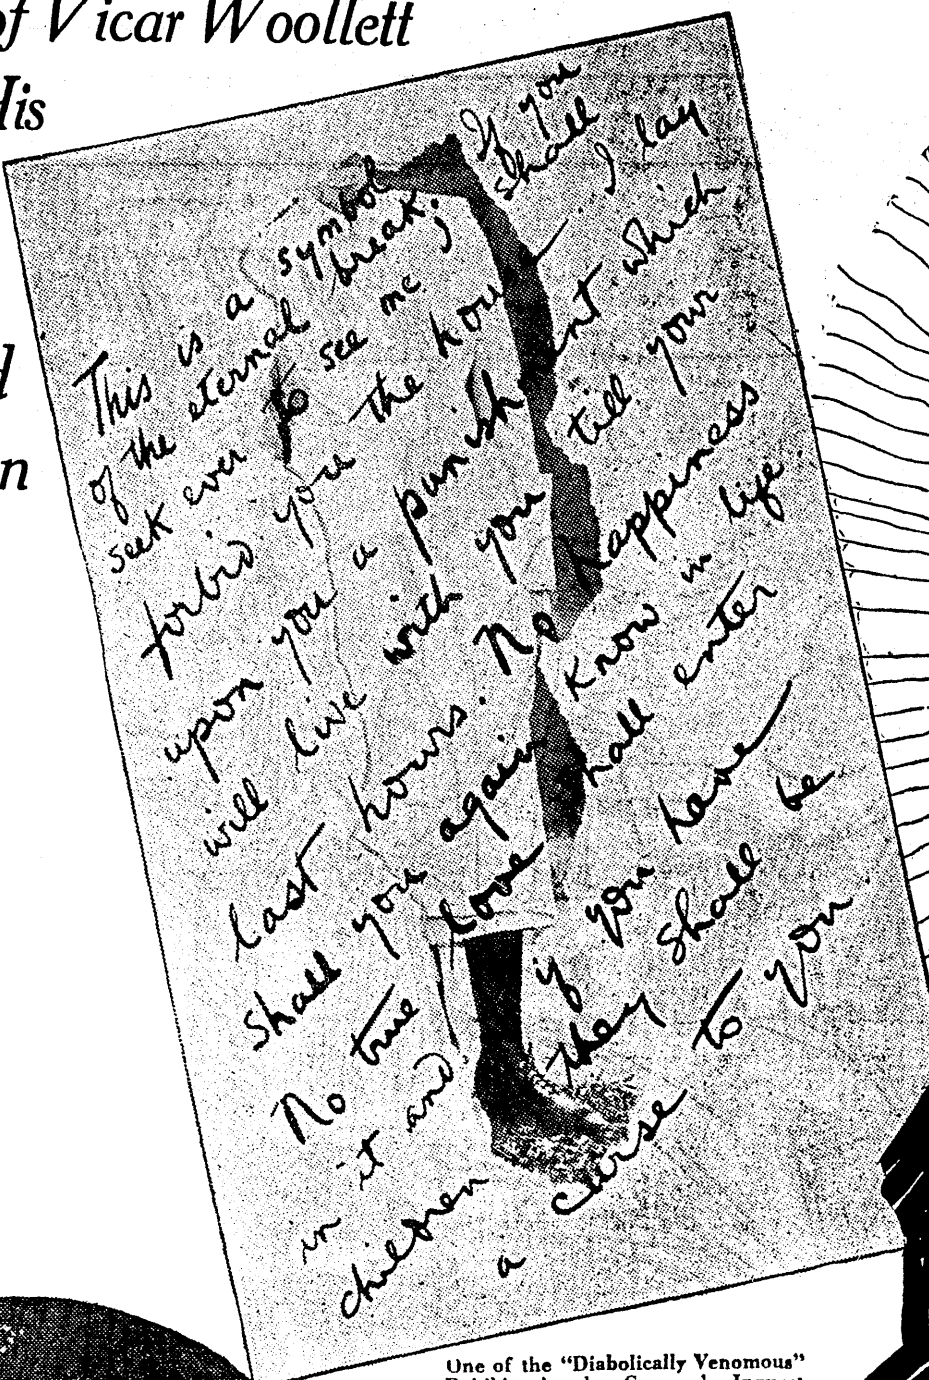 of Vicar Woollett
His
This is a symbol
of the eternal break; If you shall
seek ever to see me I
forbid you the hou I lay
upon you a punish ent which
will live with you till your
last hours. No happiness
shall you again know in life.
No true love shall enter
in it and if you have
children they shall be
a curse to you
One of the "Diabolically Venomous"